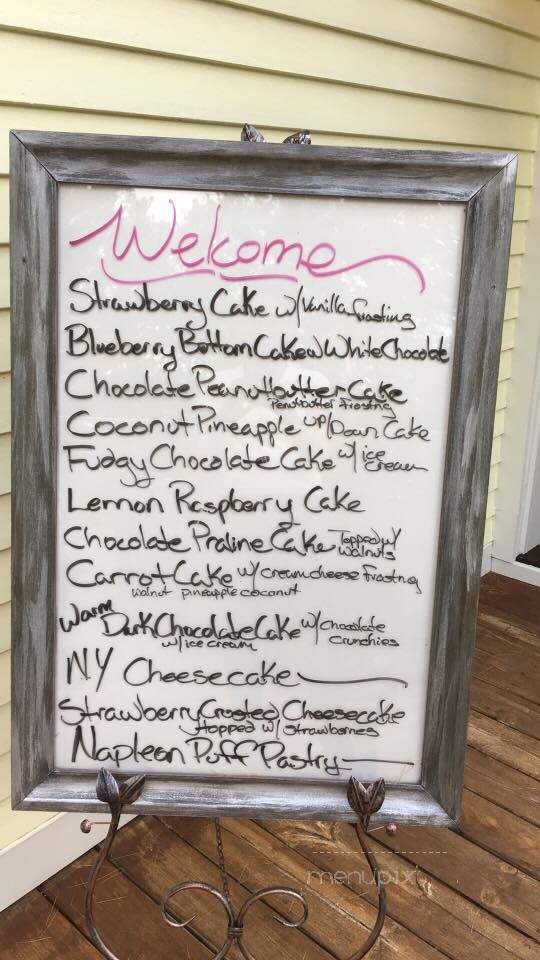 Welcome
Strawberry Cake w/Vanilla frosting
Blueberry Bottom Cake w White Chocolate
Chocolate Peanutbutter Cake
Peanutbutter Frosting
Coconut Pineapple UP/Down Cake
Fudgy Chocolate Cake w/ ice cream
Lemon Raspberry Cake
Chocolate Praline Cake Topped w/ Walnuts
Carrot Cake w/ creamcheese frosting
walnut pineapple coconut
Warm Dark Chocolate Cake w/ Chocolate Crunchies
w/ ice cream
NY Cheesecake
Strawberry Crosted Cheesecake
topped w/ strawberries
Naplean Puff Pastry
menupix